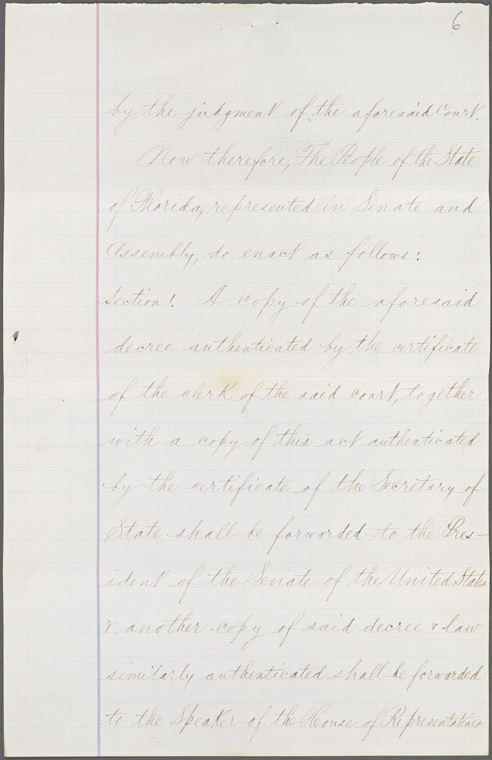 6
by the judgment of the aforesaid Court.
Now therefore, The People of the State
of Florida, represented in Senate and
Assembly, do enact as follows:
Section 1. A copy of the aforesaid
decree authenticated by the certificate
of the clerk of the said court, together
with a copy of this act authenticated
by the certificate of the Secretary of
State shall be forwarded to the Pres-
ident of the Senate of the United States
& another copy of said decree & law
similarly authenticated shall be forwarded
to the Speaker of the House of Representatives